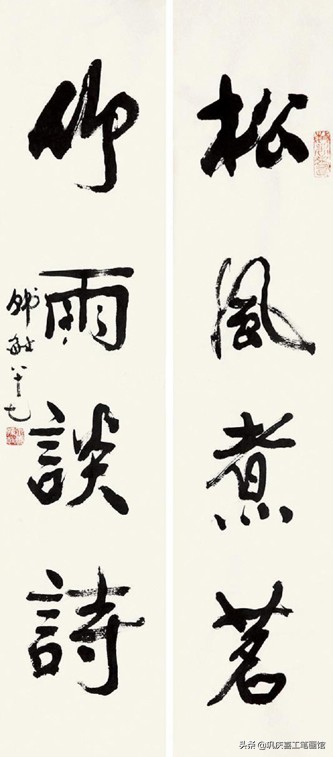 松風煮茗
竹雨談詩
八十七
头条 @巩庆喜工笔画馆